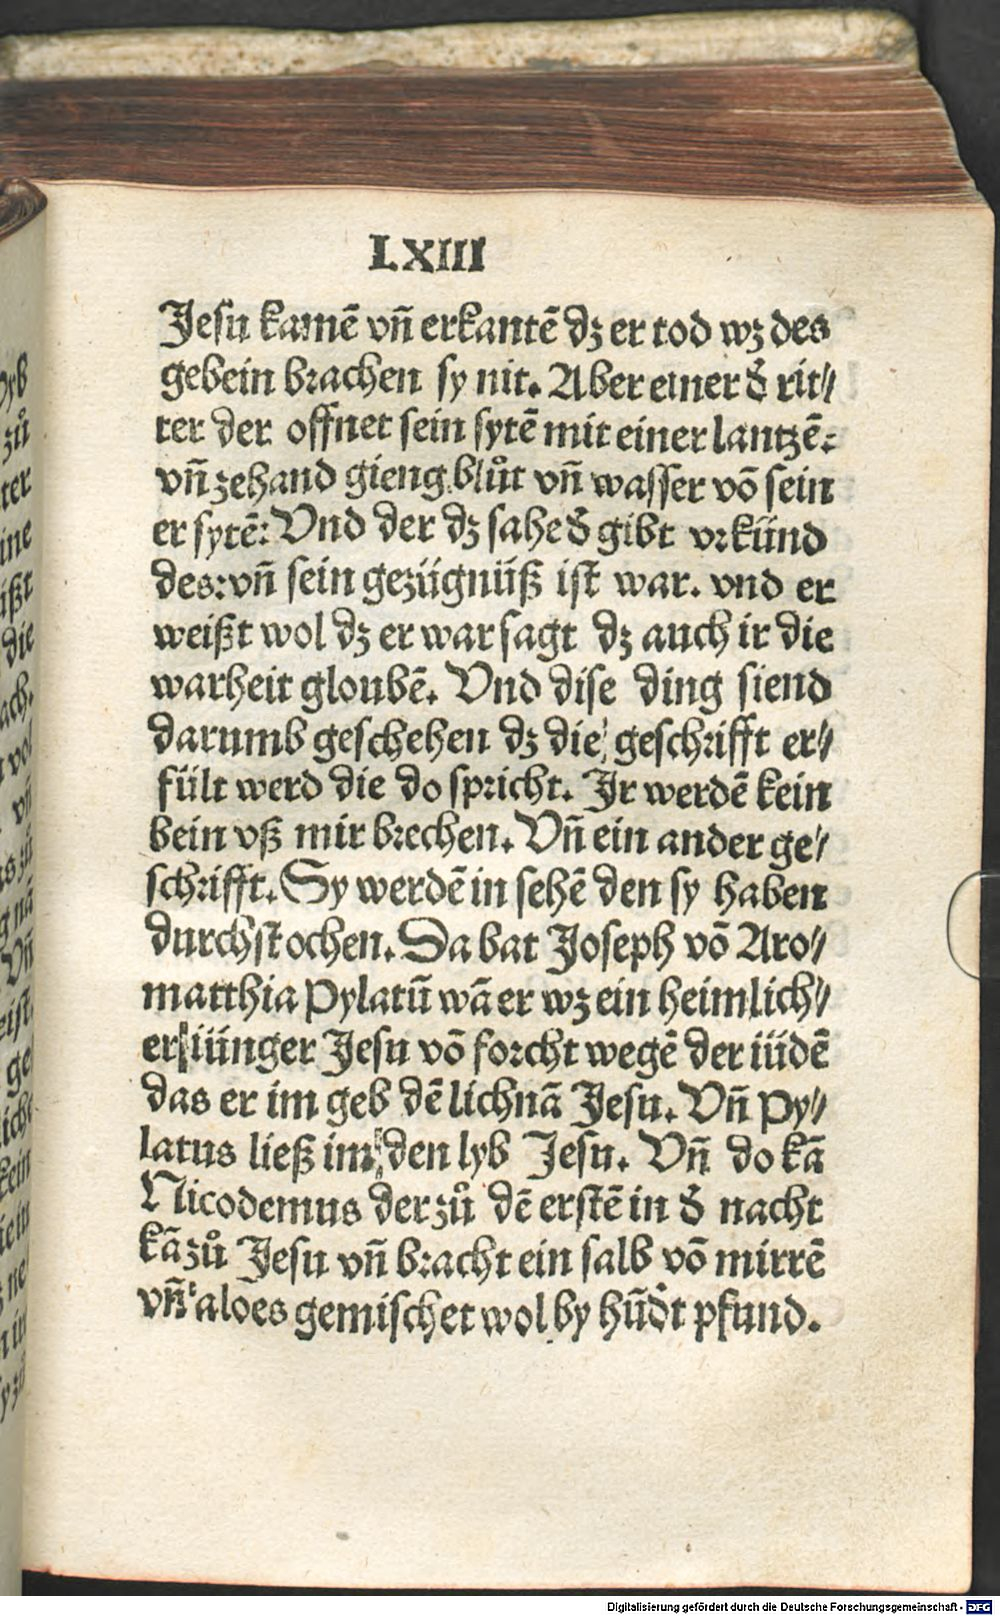 LXIII
Jesu kamē vn̄ erkantē dz er tod wz des
gebein brachen sy nit. Aber einer d̕ rit//
ter der offnet sein sytē mit einer lantzē:
vn̄ zehand gieng blůt vn̄ wasser vō sein
er sytē: Vnd der dz sahe d̕ gibt vrkünd
des: vn̄ sein gezügnüß ist war. vnd er
weißt wol dz er war sagt dz auch ir die
warheit gloubē. Vnd dise ding siend
darumb geschehen dz die geschrifft er//
fült werd die do spricht. Ir werdē kein
bein vß mir brechen. Vn̄ ein ander ge//
schrifft. Sy werdē in sehē den sy haben
durchstochen. Da bat Joseph vō Aro//
matthia Pylatū wā er wz ein heimlich//
er iünger Jesu vō forcht wegē der iüdē
das er im geb dē lichnā Jesu. Vn̄ Py//
latus ließ im den lyb Jesu. Vn̄ do kā
Nicodemus der zů dē erstē in d̕ nacht
kā zů Jesu vn̄ bracht ein salb vō mirrē
vn̄ aloes gemischet wol by hūd̕t pfund.
zů
ter
ine
ißt
die
ach.
vn̄
Vn̄
eist.
ge
kein
Digitalisierung gefördert durch die Deutsche Forschungsgemeinschaft - DFG